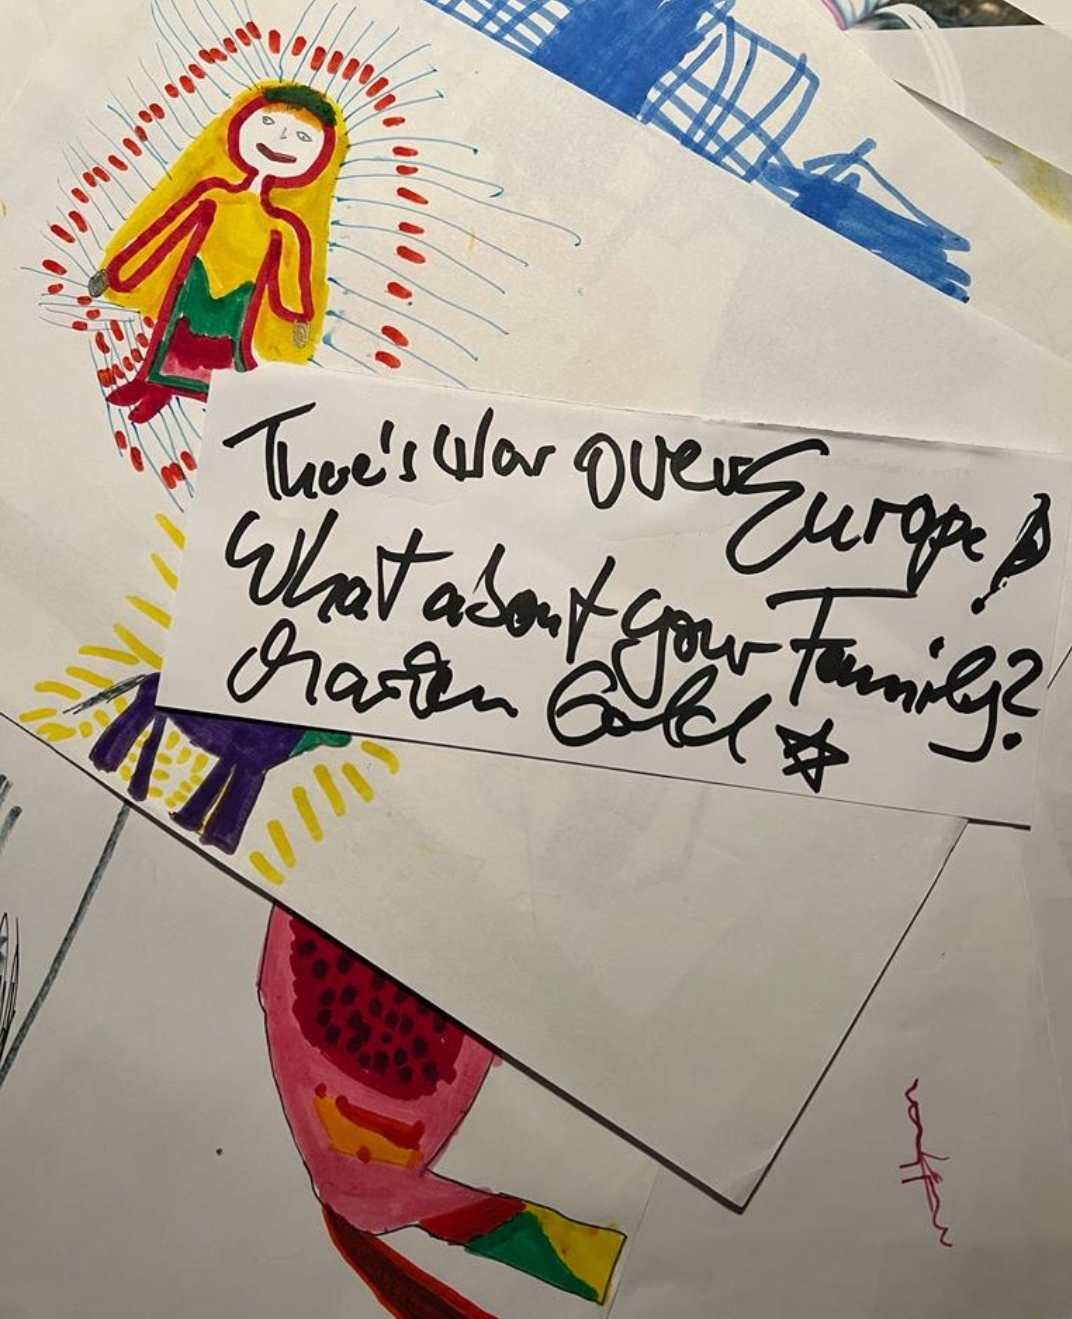 There's War over Europe!
What about your Family?
Gold